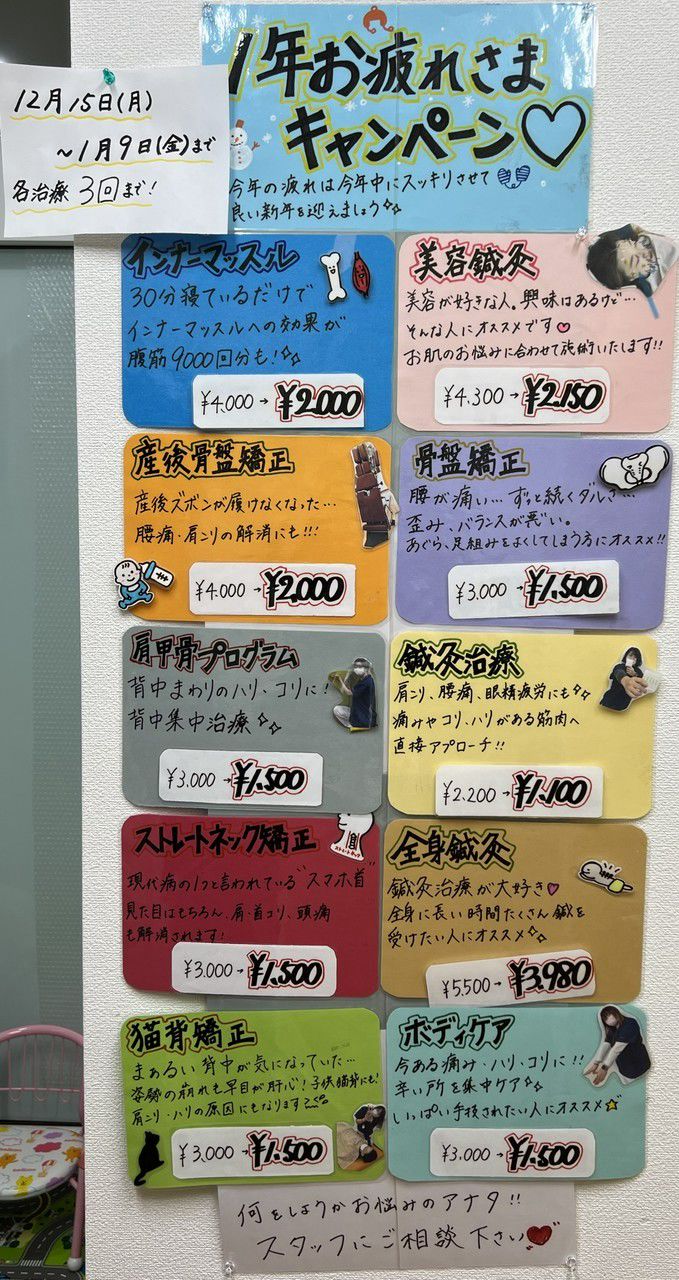 12月15日(月)
～1月9日(金)まで
各治療 3回まで!
1年お疲れさま
キャンペーン♡
今年の疲れは今年中にスッキリさせて
良い新年を迎えましょう
インナーマッスル
30分寝ているだけで
インナーマッスルへの効果が
腹筋9000回分も!
¥4.000→¥2.000
美容鍼灸
美容が好きな人。興味はあるけど…
そんな人にオススメです♡
お肌のお悩みに合わせて施術いたします!!
¥4.300→¥2.150
産後骨盤矯正
産後ズボンが履けなくなった…
腰痛・肩コリの解消にも!!!
¥4.000→¥2.000
骨盤矯正
腰が痛い…ずっと続くダルさ…
歪み、バランスが悪い。
あぐら、足組みをよくしてしまう方にオススメ!!
¥3.000→¥1.500
肩甲骨プログラム
背中まわりのハリ、コリに!
背中集中治療
¥3.000→¥1.500
鍼灸治療
肩こり、腰痛、眼精疲労にも
痛みやコリ、ハリがある筋肉へ
直接アプローチ!!
¥2.200→¥1.100
ストレートネック矯正
ストレートネック
現代病の1つと言われている"スマホ首"
見た目はもちろん、肩・首コリ、頭痛
も解消されます!
¥3.000→¥1.500
全身鍼灸
鍼灸治療が大好き♡
全身に長い時間たくさん鍼を
受けたい人にオススメ
¥5.500→¥3.980
猫背矯正
まぁるい背中が気になっていた…
姿勢の崩れも早目が肝心!子供猫背にも!
肩コリ・ハリの原因にもなります
¥3.000→¥1.500
ボディケア
今ある痛み・ハリ、コリに!!
辛い所を集中ケア
いっぱい手技されたい人にオススメ☆
¥3.000→¥1.500
何をしようかお悩みのアナタ!!
スタッフにご相談下さい♡